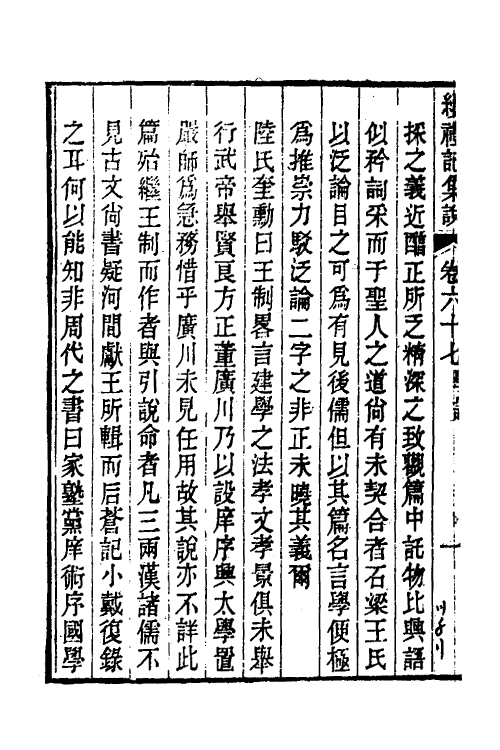 續禮記集說 卷六十七 學記
探之義近醋正所乏精深之致觀篇中託物比興語
似矜詞采而于聖人之道尙有未契合者石梁王氏
以泛論目之可爲有見後儒但以其篇名言學便極
爲推崇力駁泛論二字之非正未曉其義爾
陸氏奎勳曰王制畧言建學之法孝文孝景俱未舉
行武帝舉賢良方正董廣川乃以設庠序興太學置
嚴師爲急務惜乎廣川未見任用故其說亦不詳此
篇殆繼王制而作者與引說命者凡三兩漢諸儒不
見古文尙書疑河間獻王所輯而后蒼記小戴復錄
之耳何以能知非周代之書曰家塾黨庠術序國學